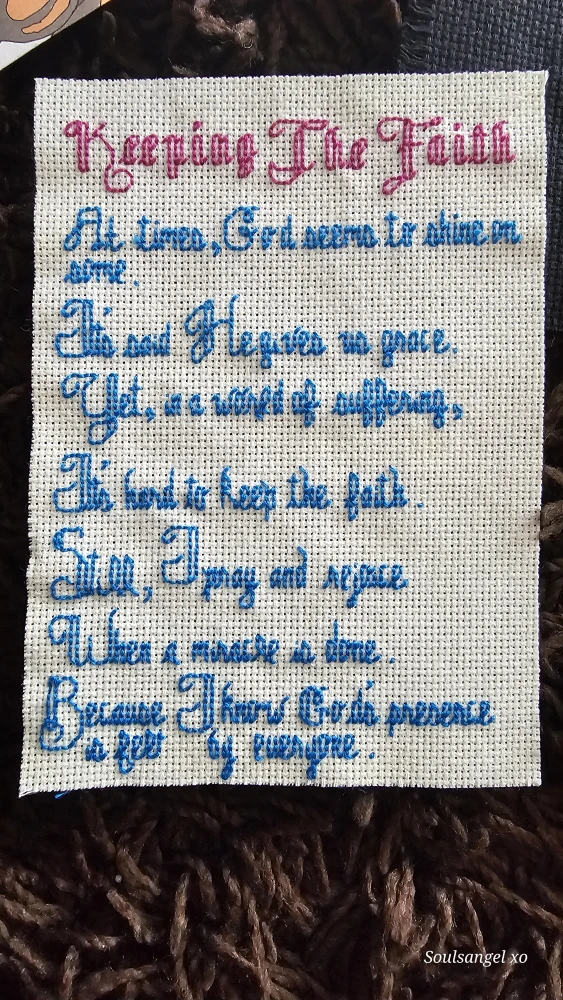 Keeping The Faith
At times, God seems to shine on
some.
It's said He gives us grace.
Yet, in a world of suffering,
It's hard to keep the faith.
Still, I pray and rejoice
When a miracle is done.
Because I know God's presence
is felt by everyone.
Soulsangel xo